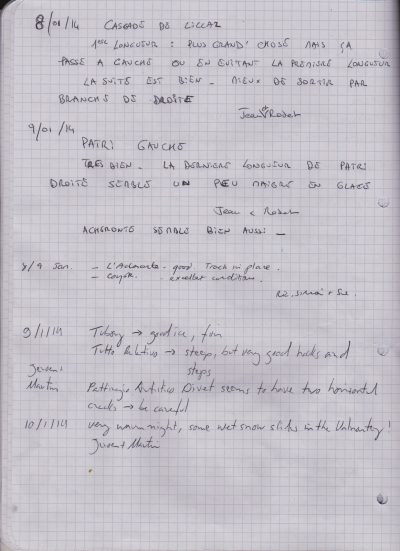 8/01/14 CASCADE DE LILLAZ
1ère LONGUEUR : PLUS GRAND' CHOSE MAIS ÇA
PASSE A GAUCHE OU EN EVITANT LA PREMIERE LONGUEUR
LA SUITE EST BIEN. MIEUX DE SORTIR PAR
BRANCHE DE DROITE
Jean & Robert
9/01/14
PATRI GAUCHE
TRES BIEN. LA DERNIERE LONGUEUR DE PATRI
DROITE SEMBLE UN PEU MAIGRE EN GLACE
Jean & Robert
ACHERONTE SEMBLE BIEN AUSSI _
8/9 Jan. - L'Acheronte - good. Track in place.
- - excellent condition.
Simon + Sue.
9/1/14 Tuborg → good ice, fun
Tutto Relativo → steep, but very good hooks and
steps
Martin Pattinagio Artistico Divet seems to have two horizontal
cracks → be careful
10/1/14 very warm night, some wet snow slides in the Valnontey!
Martin